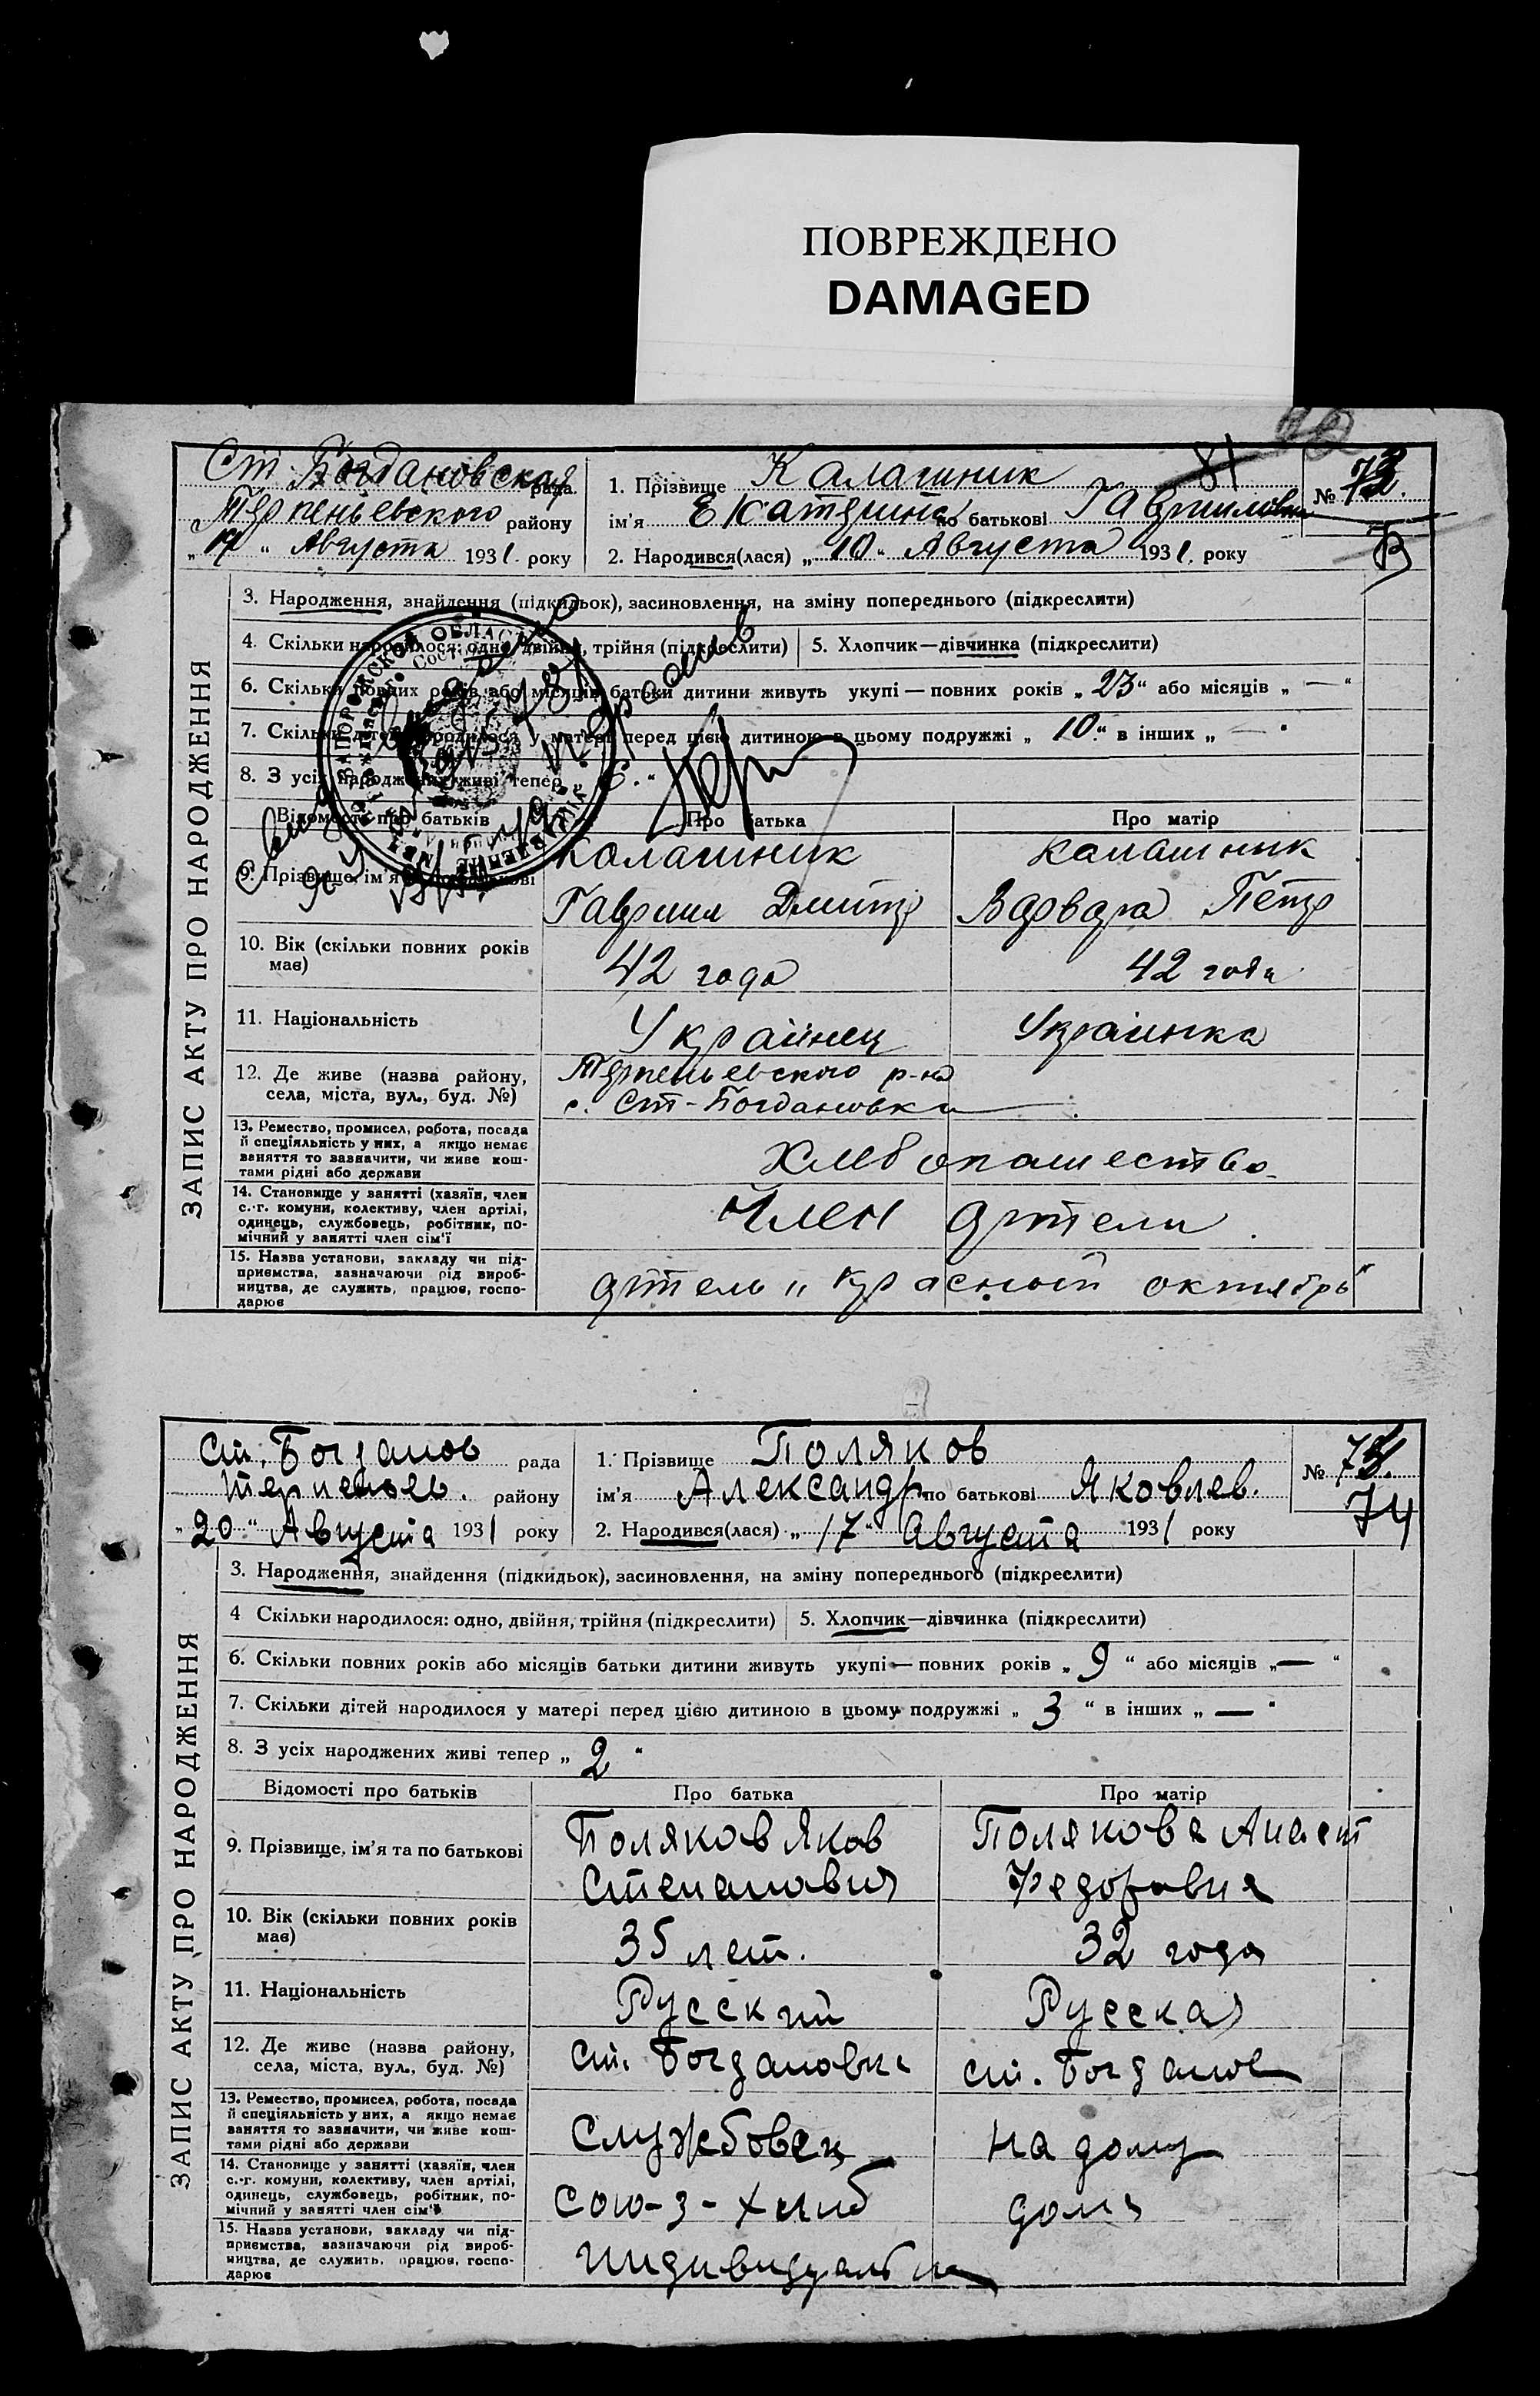 ПОВРЕЖДЕНО
DAMAGED
ЗАПИС АКТУ ПРО НАРОДЖЕННЯ
Ст. Богдановская рада
Терпеньевского району
Августа 1931. року
1. Прізвище Калашник
ім'я Екатерина по батькові Гавриловна
2. Народився(лася) „10" Августа 1931. року
81
№ 73.
73
3. Народження, знайдення (підкидьок), засиновлення, на зміну попереднього (підкреслити)
4. Скільки народилося: одно, двійня, трійня (підкреслити) 5. Хлопчик—дівчинка (підкреслити)
6. Скільки повних років або місяців батьки дитини живуть укупі — повних років „23" або місяців „—"
7. Скільки дітей народилося у матері перед цією дитиною в цьому подружжі „10." в інших „—"
8. З усіх народжених живі тепер „6."
ЗАПОРОЖСКОЙ ОБЛАСТ
Відомості про батьків Про батька Про матір
9. Прізвище, ім'я та по батькові Калашник Калашник
Гаврил Дмитр Варвара Петр
10. Вік (скільки повних років має) 42 года 42 года
11. Національність Украинец Украинка
12. Де живе (назва району, Терпеньевского р-на
села, міста, вул., буд. №) с. Ст-Богдановка
13. Ремество, промисел, робота, посада
й спеціяльність у них, а якщо немає
заняття то зазначити, чи живе кош-
тами рідні або держави
Хлебопашество
14. Становище у занятті (хазяїн, член
с.-г. комуни, колективу, член артілі,
одинець, службовець, робітник, по-
мічний у занятті член сім'ї
Член артели
15. Назва установи, закладу чи під-
приємства, зазначаючи рід вироб-
ництва, де служить, працює, госпо-
дарює
артель „Красный октябрь"
ЗАПИС АКТУ ПРО НАРОДЖЕННЯ
Ст. Богданов рада
Терпеньев. району
„20" Августа 1931 року
1. Прізвище Поляков
ім'я Александр по батькові Яковлев.
2. Народився(лася) „17" Августа 1931 року
№
74
3. Народження, знайдення (підкидьок), засиновлення, на зміну попереднього (підкреслити)
4 Скільки народилося: одно, двійня, трійня (підкреслити) 5. Хлопчик—дівчинка (підкреслити)
6. Скільки повних років або місяців батьки дитини живуть укупі — повних років „9" або місяців „—"
7. Скільки дітей народилося у матері перед цією дитиною в цьому подружжі „3" в інших „—"
8. З усіх народжених живі тепер „2"
Відомості про батьків Про батька Про матір
9. Прізвище, ім'я та по батькові Поляков Яков Полякова Анаст
Степанович Федоровна
10. Вік (скільки повних років має) 35 лет. 32 года
11. Національність Русский Русская
12. Де живе (назва району,
села, міста, вул., буд. №) ст. Богдановка ст. Богданов
13. Ремество, промисел, робота, посада
й спеціяльність у них, а якщо немає
заняття то зазначити, чи живе кош-
тами рідні або держави
Службовец на дому
14. Становище у занятті (хазяїн, член
с.-г. комуни, колективу, член артілі,
одинець, службовець, робітник, по-
мічний у занятті член сім'ї
Сою-з-хлиб дома
15. Назва установи, закладу чи під-
приємства, зазначаючи рід вироб-
ництва, де служить, працює, госпо-
дарює